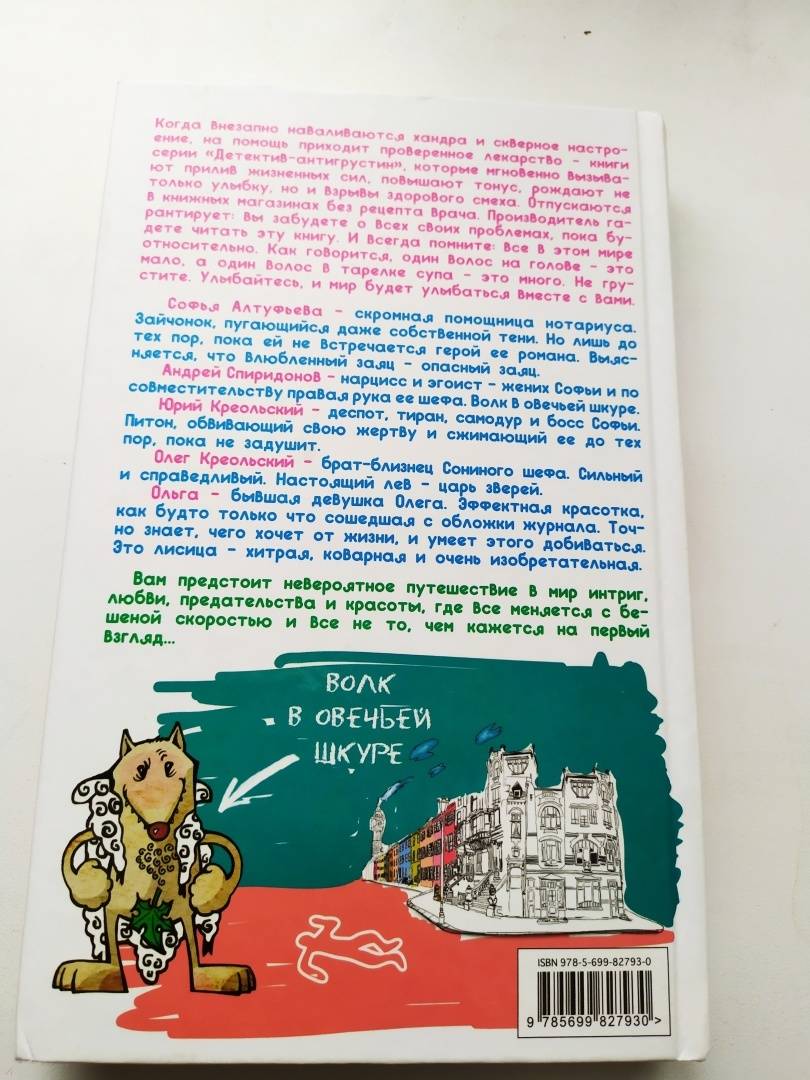 Когда внезапно наваливаются хандра и скверное настро-
ение, на помощь приходит проверенное лекарство - книги
серии «Детектив-антигрустин», которые мгновенно вызыва-
ют прилив жизненных сил, повышают тонус, рождают не
только улыбку, но и взрывы здорового смеха. Отпускаются
в книжных магазинах без рецепта врача. Производитель га-
рантирует: вы забудете о всех своих проблемах, пока бу-
дете читать эту книгу. И всегда помните: все в этом мире
относительно. Как говорится, один волос на голове - это
мало, а один волос в тарелке супа - это много. Не гру-
стите. Улыбайтесь, и мир будет улыбаться вместе с вами.
Софья Алтуфьева - скромная помощница нотариуса.
Зайчонок, пугающийся даже собственной тени. Но лишь до
тех пор, пока ей не встречается герой ее романа. Выяс-
няется, что влюбленный заяц - опасный заяц.
Андрей Спиридонов - нарцисс и эгоист - жених Софьи и по
совместительству правая рука ее шефа. Волк в овечьей шкуре.
Юрий Креольский - деспот, тиран, самодур и босс Софьи.
Питон, обвивающий свою жертву и сжимающий ее до тех
пор, пока не задушит.
Олег Креольский - брат-близнец Сониного шефа. Сильный
и справедливый. Настоящий лев - царь зверей.
Ольга - бывшая девушка Олега. Эффектная красотка,
как будто только что сошедшая с обложки журнала. Точ-
но знает, чего хочет от жизни, и умеет этого добиваться.
Это лисица - хитрая, коварная и очень изобретательная.
Вам предстоит невероятное путешествие в мир интриг,
любви, предательства и красоты, где все меняется с бе-
шеной скоростью и все не то, чем кажется на первый
взгляд...
ВОЛК
В ОВЕЧЬЕЙ
ШКУРЕ
ISBN 978-5-699-82793-0
9 785699 827930 >